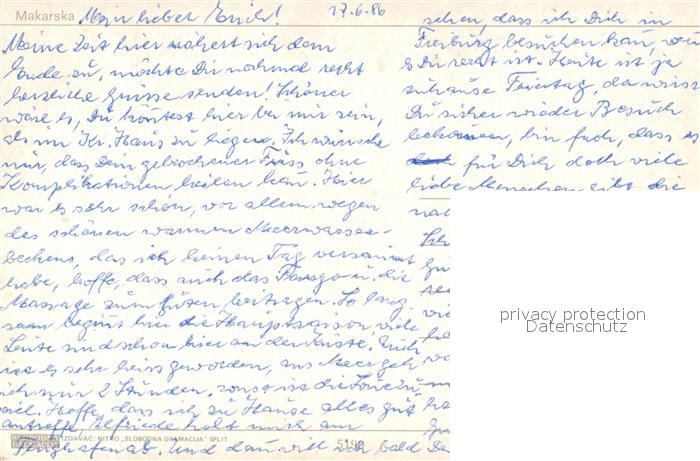 Makarska Mein lieber Erich! 27.6.86
Meine Zeit hier nähert sich dem
Ende zu, möchte Dir nochmal recht
herzliche Grüsse senden! Schöner
wäre es, Du könntest hier bei mir sein,
als im Kr. Haus zu liegen. Ich wünsche
mir, dass Dein gebrochener Fuss ohne
Komplikationen heilen kann. Hier
war es sehr schön, vor allem wegen
des schönen warmen Meerwasser-
beckens, das ich keinen Tag versäumt
habe, hoffe, dass auch das Fango u. die
Massage zum Guten beitragen. So lang-
sam beginnt hier die Hauptsaison, viele
Leute sind schon hier an der Küste. Auch
ist es sehr heiss geworden, ans Meer geh
ich nur 2 Stunden, sonst ist die Sonne zu
viel. Hoffe, dass ich zu Hause alles gut
antreffe, Elfriede holt mich am
ab. Und dann will ich bald
IZDAVAČ: NITRO „SLOBODNA DALMACIJA" SPLIT
519
sehen, dass ich Dich in
Freiburg besuchen kann, wenn
es Dir recht ist. Heute ist ja
zuhause Feiertag, da wirst
Du sicher wieder Besuch
bekommen, bin froh, dass es
für Dich doch viele
liebe Menschen gibt, die
privacy protection
Datenschutz